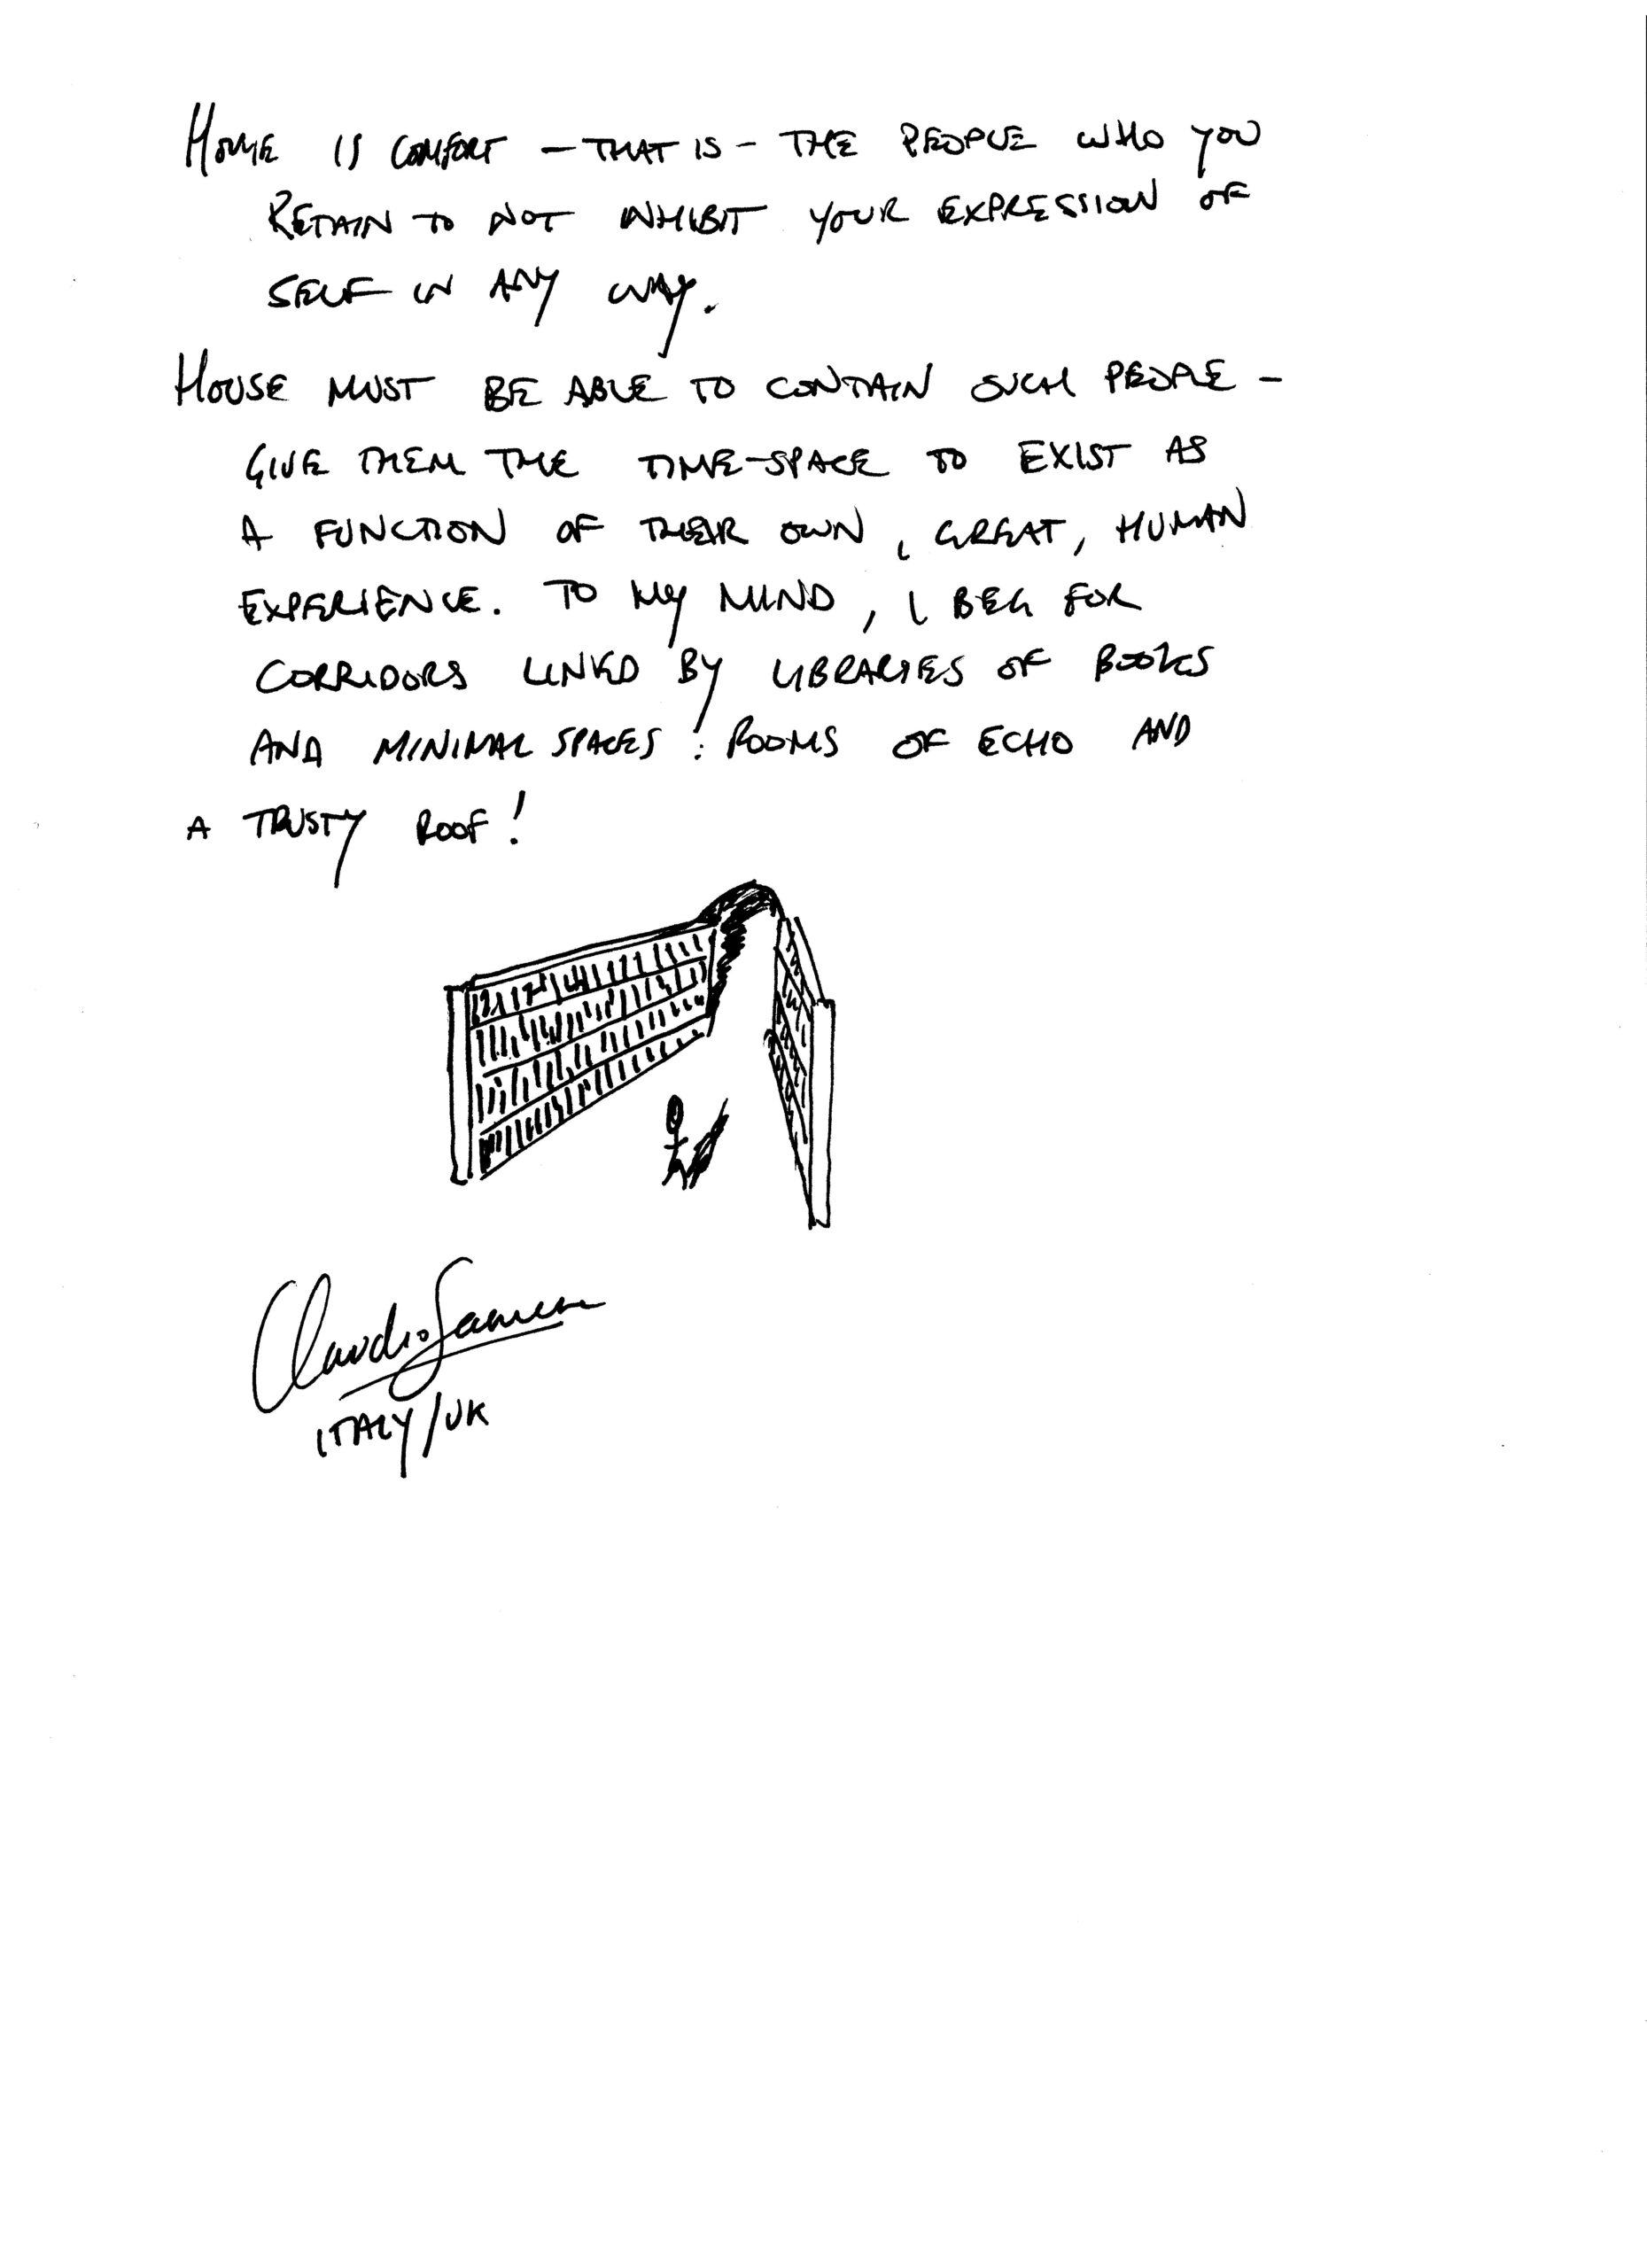 HOME IS COMFORT - THAT IS - THE PEOPLE WHO YOU
RETAIN TO NOT INHIBIT YOUR EXPRESSION OF
SELF IN ANY WAY.
HOUSE MUST BE ABLE TO CONTAIN SUCH PEOPLE -
GIVE THEM THE TIME-SPACE TO EXIST AS
A FUNCTION OF THEIR OWN, GREAT, HUMAN
EXPERIENCE. TO MY MIND, I BEG FOR
CORRIDORS LINKED BY LIBRARIES OF BOOKS
AND MINIMAL SPACES: ROOMS OF ECHO AND
A TRUSTY ROOF!
Claudio
ITALY/UK